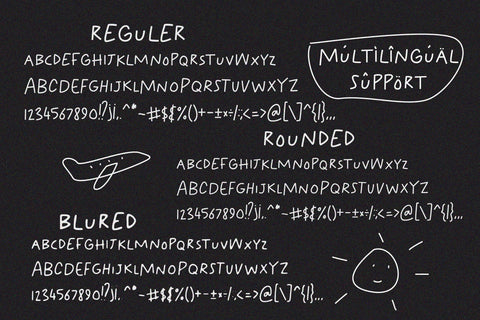 REGULER
ABCDEFGHIJKLMNOPQRSTUVWXYZ
ABCDEFGHIJKLMNOPQRSTUVWXYZ
1234567890!?¡¿,.^*~-#$₺%()+−±×÷/:;<=>@[\]^{|},,,
MÚLTÌLÎNGÚÄL
SÛPPÖRT
ROUNDED
ABCDEFGHIJKLMNOPQRSTUVWXYZ
ABCDEFGHIJKLMNOPQRSTUVWXYZ
BLURED
ABCDEFGHIJKLMNOPQRSTUVWXYZ
ABCDEFGHIJKLMNOPQRSTUVWXYZ